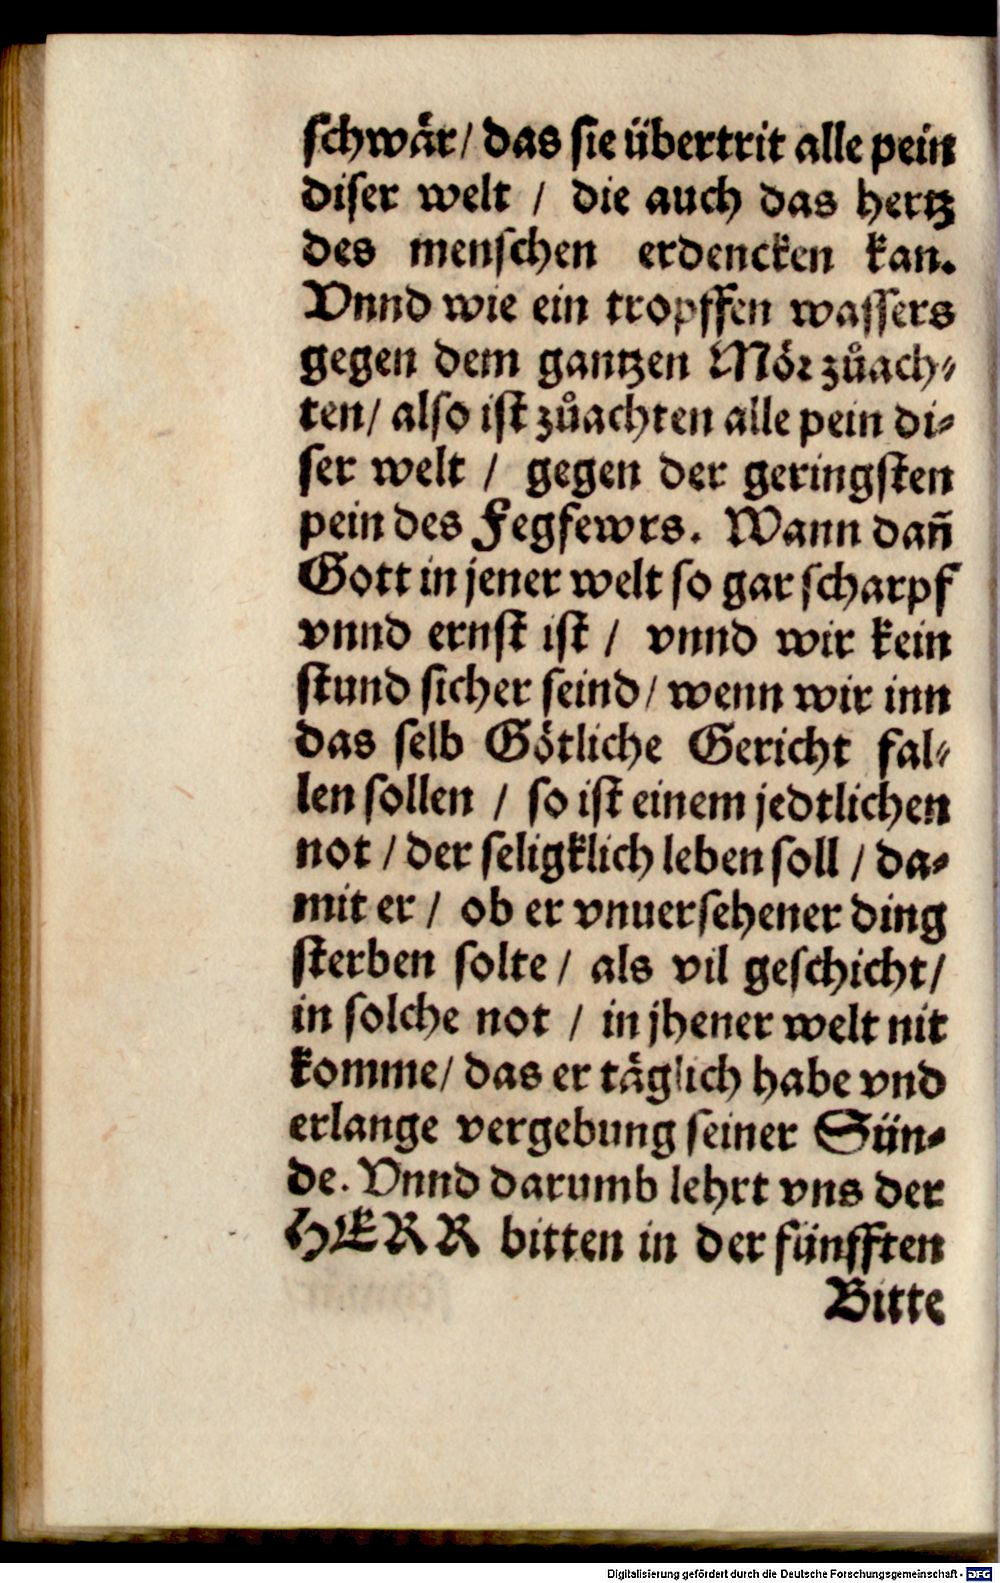 schwaͤr/ das sie übertrit alle pein
diser welt / die auch das hertz
des menschen erdencken kan.
Vnnd wie ein tropffen wassers
gegen dem gantzen Moͤr zuͦach⸗
ten/ also ist zuͦachten alle pein di⸗
ser welt / gegen der geringsten
pein des Fegfewrs. Wann dañ
Gott in jener welt so gar scharpf
vnnd ernst ist / vnnd wir kein
stund sicher seind/ wenn wir inn
das selb Goͤtliche Gericht fal⸗
len sollen / so ist einem jedtlichen
not / der seligklich leben soll / da⸗
mit er / ob er vnuersehener ding
sterben solte / als vil geschicht/
in solche not / in jhener welt nit
komme/ das er taͤglich habe vnd
erlange vergebung seiner Sün⸗
de. Vnnd darumb lehrt vns der
HERR bitten in der fünfften
Bitte
Digitalisierung gefördert durch die Deutsche Forschungsgemeinschaft - DFG